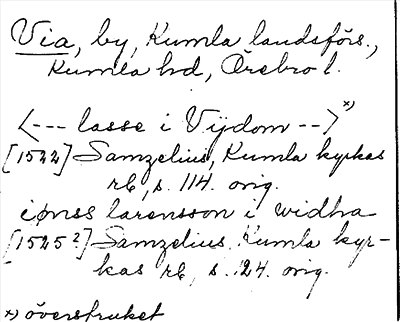 Via, by, Kumla landsförs.,
Kumla hd, Örebro l.
<--- lasse i Vijdom --> *)
[1522] Samzelius, Kumla kyrkas
rb, s. 114. orig.
iønss larensson i widha
[1525?] Samzelius, Kumla kyr-
kas rb, s. 124. orig.
*) överstruket